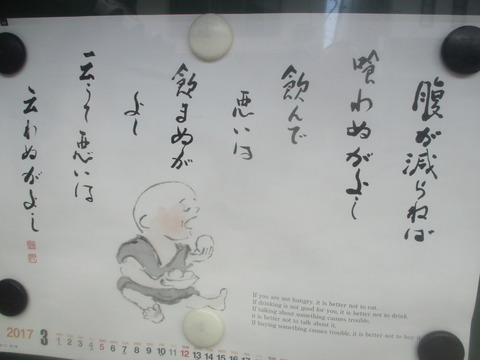 腹が減らねば
喰わぬがよし
飲んで
悪いは
飲まぬが
よし
云うて悪いは
云わぬがよし
If you are not hungry, it is better not to eat.
If drinking is not good for you, it is better not to drink.
If talking about something causes trouble,
it is better not to talk about it.
If buying something causes trouble, it is better not to buy it
2017 3